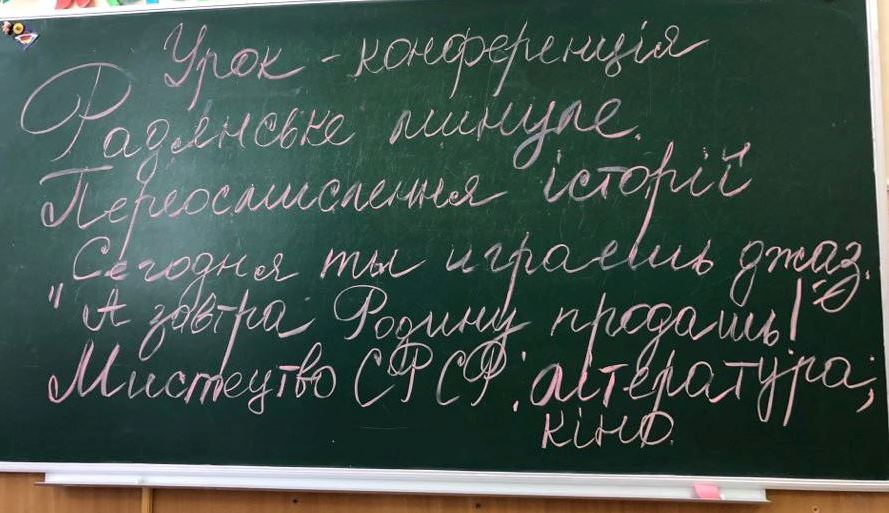 Урок - конференція
Радянське минуле.
Переосмислення історії
Сегодня ты играешь джаз.
"А завтра Родину продашь!"
Мистецтво СРСР: література;
кіно.